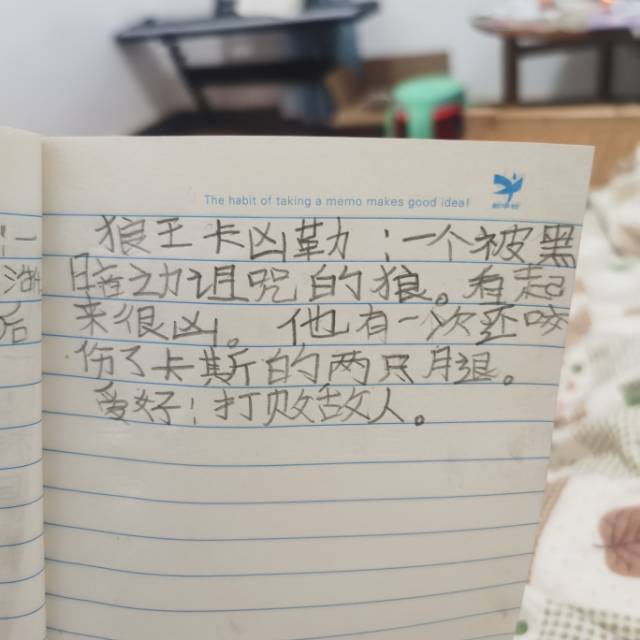 The habit of taking a memo makes good idea!
狼王卡凶勒；一个被黑
暗之力诅咒的狼。看起
来很凶。他有一次还咬
伤了卡斯的两只月退。
爱好；打败敌人。
一
治
后